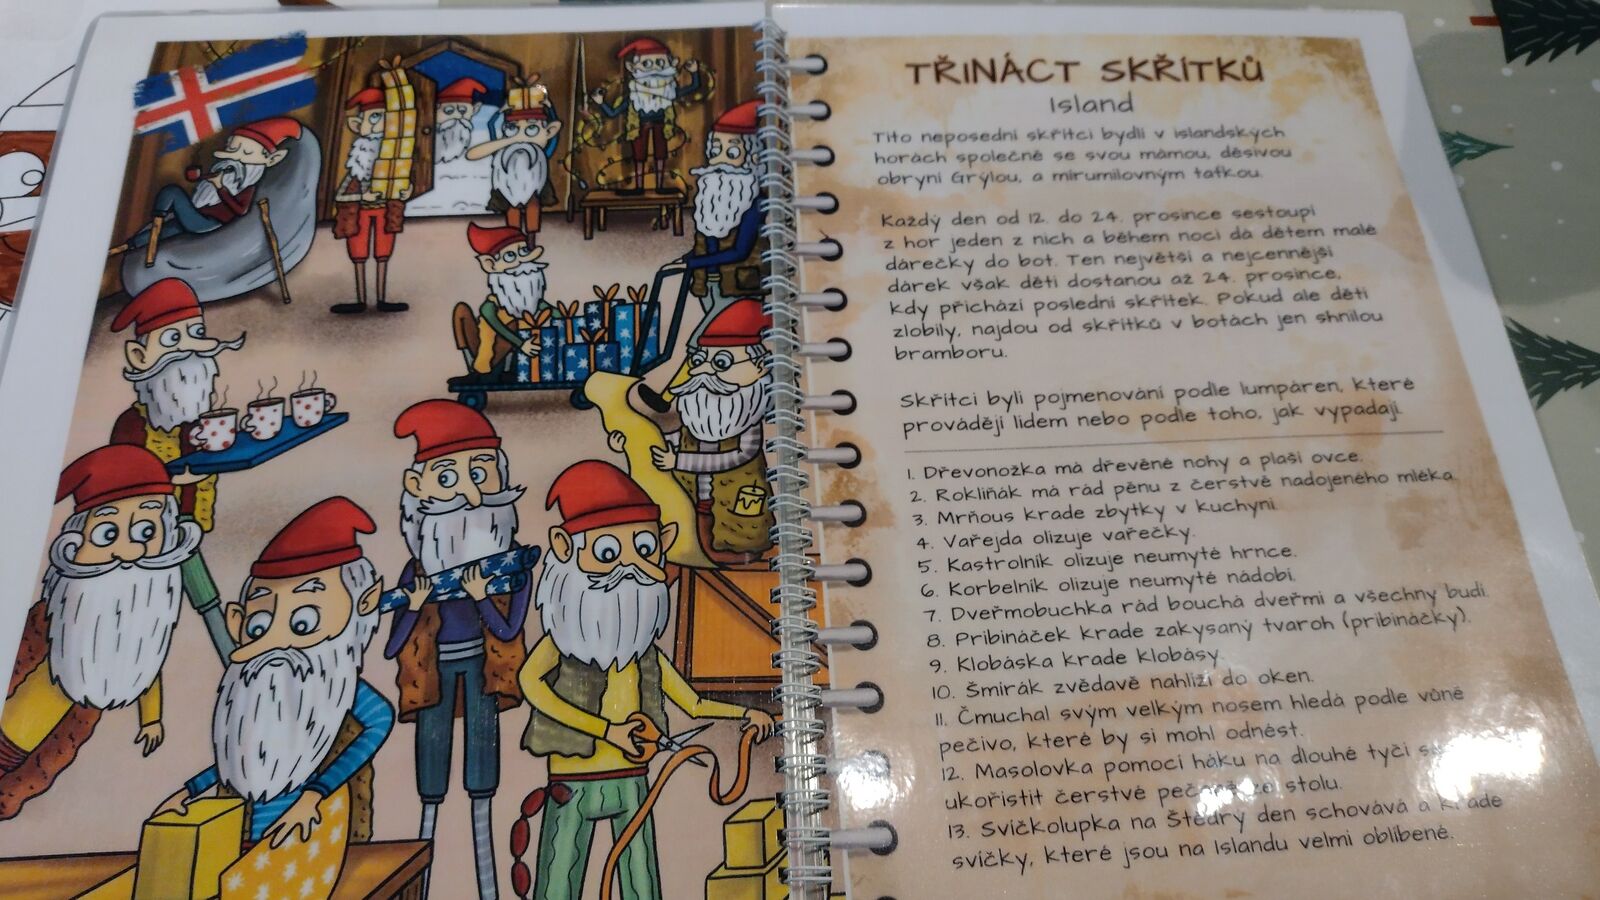 TŘINÁCT SKŘÍTKŮ
Island
Tito neposední skřítci bydlí v islandských
horách společně se svou mámou, děsivou
obryní Grýlou, a mírumilovným taťkou.
Každý den od 12. do 24. prosince sestoupí
z hor jeden z nich a během noci dá dětem malé
dárečky do bot. Ten největší a nejcennější
dárek však děti dostanou až 24. prosince,
kdy přichází poslední skřítek. Pokud ale děti
zlobily, najdou od skřítků v botách jen shnilou
bramboru.
Skřítci byli pojmenováni podle lumpáren, které
provádějí lidem nebo podle toho, jak vypadají.
1. Dřevonožka má dřevěné nohy a plaší ovce.
2. Rokliňák má rád pěnu z čerstvě nadojeného mléka.
3. Mrňous krade zbytky v kuchyni.
4. Vařejda olizuje vařečky.
5. Kastrolník olizuje neumyté hrnce.
6. Korbelník olizuje neumyté nádobí.
7. Dveřmobuchka rád bouchá dveřmi a všechny budí.
8. Pribináček krade zakysaný tvaroh (pribináčky).
9. Klobáska krade klobásy.
10. Šmírák zvědavě nahlíží do oken.
11. Čmuchal svým velkým nosem hledá podle vůně
pečivo, které by si mohl odnést.
12. Masolovka pomocí háku na dlouhé tyči
ukořistit čerstvé ze stolu.
13. Svíčkolupka na Štědrý den schovává a krade
svíčky, které jsou na Islandu velmi oblíbené.